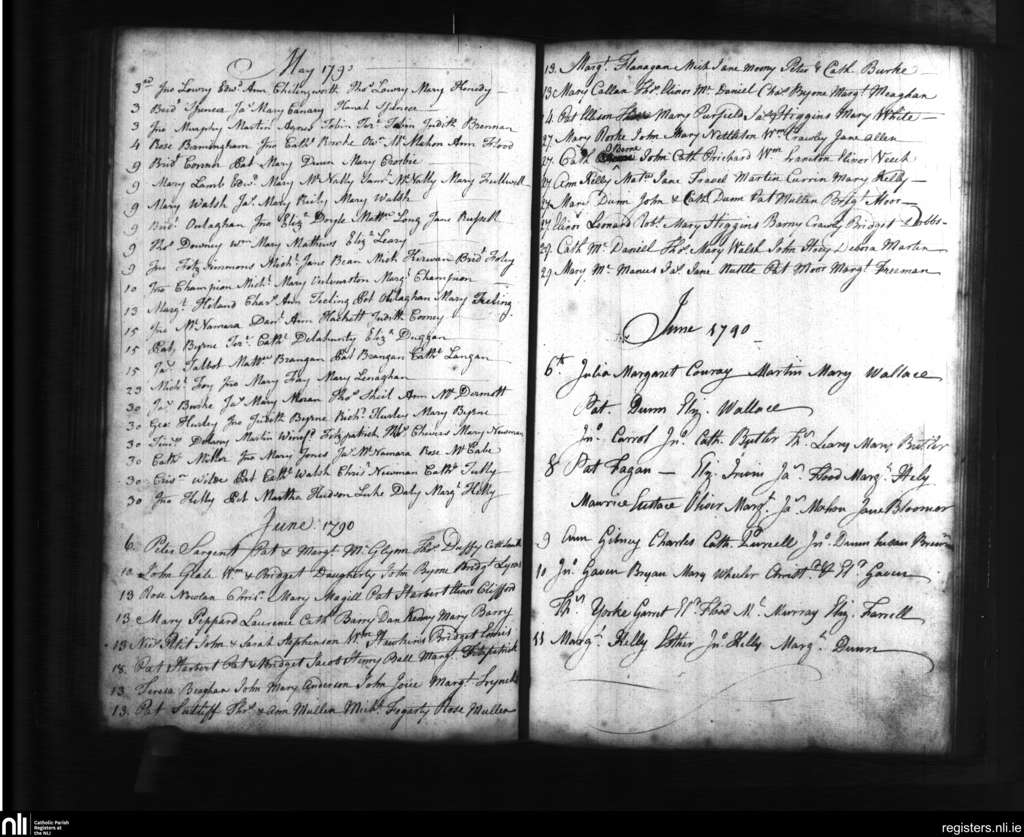 May 1790
3rd Jno Lowry Edwd Ann Chilingworth Thos Lowry Mary Kenedy
3 Brid Spencer Jas Mary Canary Spencer
3 Jno Murphy Martin Agnes Tobin Tobin Judith Brennan
4 Rose Barmingham Jno Cathe Rorke Mc Mahon Ann Flood
9 Brid Connor Pat Mary Dunn Mary
9 Mary Lamb Edwd Mary Mc Nally Jams Mc Nally Mary
9 Mary Walsh Jas Mary Reily Mary Walsh
9 Brid Oulaghan Jno Eliza Doyle Matw Long Jane Russell
9 Thos Downey Wm Mary Mathews Eliza Leary
9 Jno Fitzsimmons Michl Jane Bean Mich Kirwan Brid Foley
10 Jno Champion Michl Mary Margt Champion
13 Margt Heland Chars Ann Teeling Pat Oulaghan Mary Teeling
15 Jno Mc Namara Danl Ann Hackett Judith Cooney
15 Patk Byrne Cathe Delahunty Eliza Duggan
15 Jas Talbot Mattw Brangan Pat Brangan Cathe Langan
23 Michl Foy Jno Mary Fay Mary Lenaghan
30 Jas Burke Jas Mary Moran Thos Sheil Ann Mc Dermott
30 Geo Hurley Jno Judith Byrne Richd Hurley Mary Byrne
30 Delany Martin Winifd Fitzpatrick Mary Newman
30 Cathe Miller Jno Mary Jones Jas McNamara Rose Mc Cabe
30 Wilde Pat Cathe Walsh Chrisr Newman Cathe Tully
30 Jno Kelly Pat Martha Hudson Luke Daly Margt Kelly
June 1790
6 Peter Sargent Pat & Margt Mc Glynn Thos Duffy
10 John Glale Wm & Bridget Daugherty John Byrne Bridgt Lyons
13 Rose Nowlan Chrisr Mary Magill Pat Harbert Elinor Clifford
13 Mary Peppard Laurence Cath Barry Dan Kenny Mary Barry
13 Petit John & Sarah Stephenson Wm Hawkins Bridget Ennis
18. Pat Harbert Pat & Bridget Jacob Henry Ball Margt Fitzpatrick
13. Teresa Beaghan John Mary Anderson John Joice Margt
13. Pat Sutliff Thos & Ann Mullen Michl Fegarty Rose Mullen
13. Margt Flanagan Mich Jane Moony Peter & Cath Burke
13 Mary Callan Thos Elinor Mc Daniel Chas Byrne Margt Meaghan
14 Pat Ellison Mary Purfield Jas Higgins Mary White
27 Mary Rorke John Mary Nettleton Wm Crawly Jane Allen
27 Cath Byrne John Cath Prichard Wm Elinor Veech
27 Ann Kelly Matw Jane Fraset Martin Currin Mary Kelly
27 Mary Dunn John & Cath Dunn Pat Mullen Bridgt Moor
27 Elinor Leonard Robt Mary Higgins Barny Crawly Bridget Dobbs
29 Cath Mc Daniel Thos Mary Walsh John Hoey Debra Martin
29 Mary Mc Manus Jas Jane Nuttle Pat Moor Margt Freeman
June 1790
6th Julia Margaret Conray Martin Mary Wallace
Pat. Dunn Elizh. Wallace
Jno. Carrol Jno. Cath. Butler Ths. Leary Mary Butler
8 Pat Fagan — Eliz. Irwin Jas. Flood Margt. Hely
Maurice Eustace Oliver Margt. Jas. Mahon Jane Bloomer
9 Ann Gibney Charles Cath. Purcell Jno. Dunn Susan Brown
10 Jno. Gaven Bryan Mary Wheeler Christr. & Elizh Gaven
Ths. Yorke Garret Elizh Flood Ml. Murray Elizh. Farrell
11 Margt. Kelly Esther Jno. Kelly Margt. Dunn
nli
Catholic Parish
Registers at
the NLI
registers.nli.ie